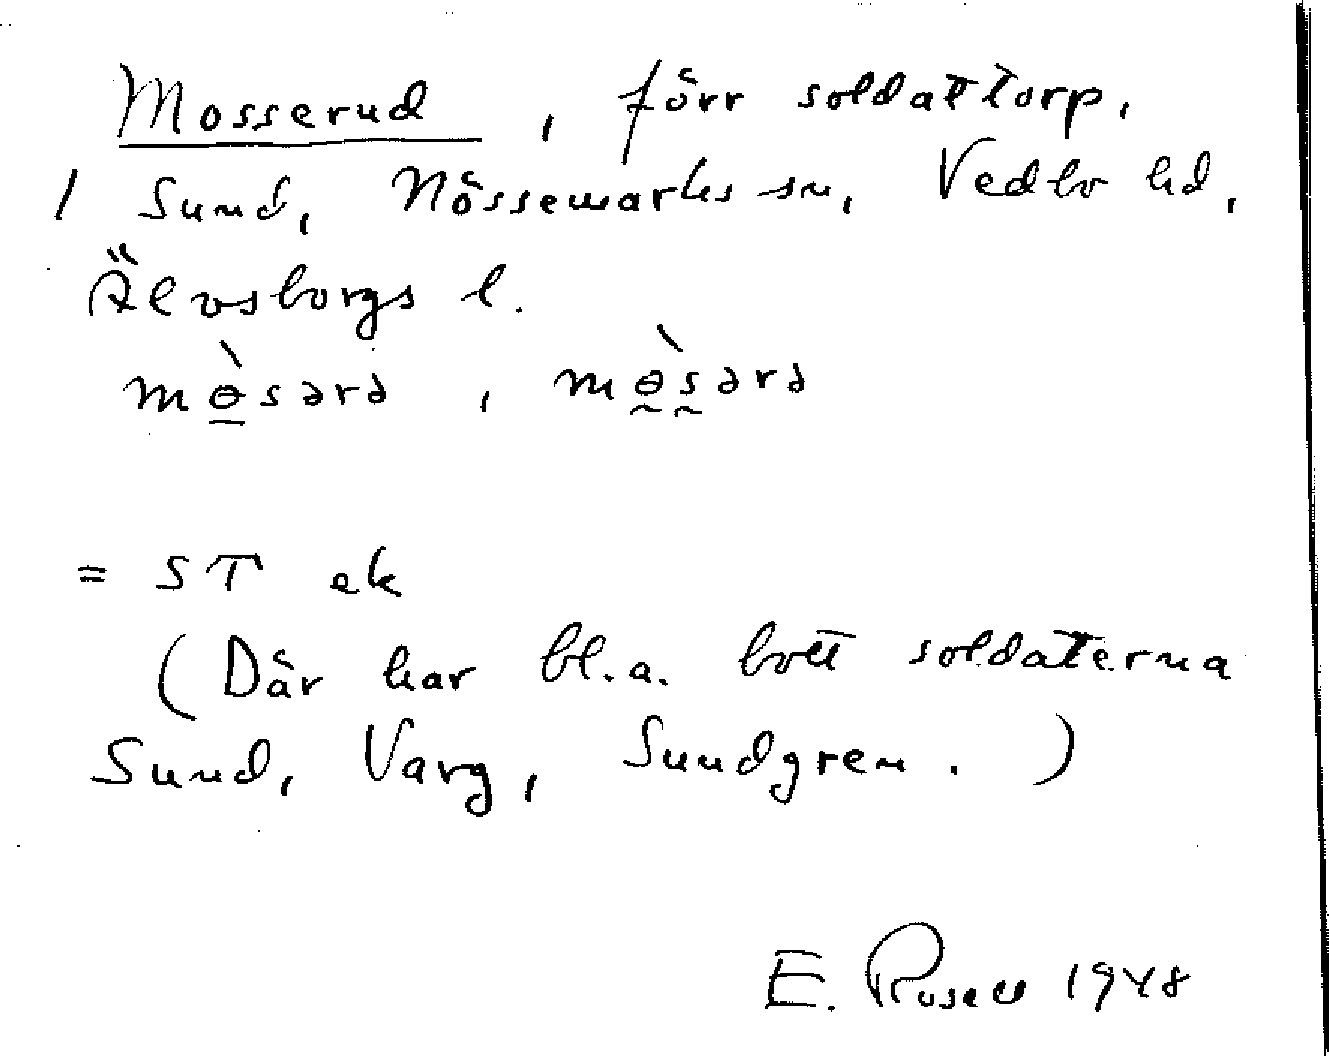 Mosserud, förr soldattorp,
1 Sund, Nössemarks sn, Vedbo hd,
Älvsborgs l.
mɵ̀sərə, mɵ̀sərə
= ST ek
(Där har bl.a. bott soldaterna
Sund, Varg, Sundgren.)
E. Rosell 1948